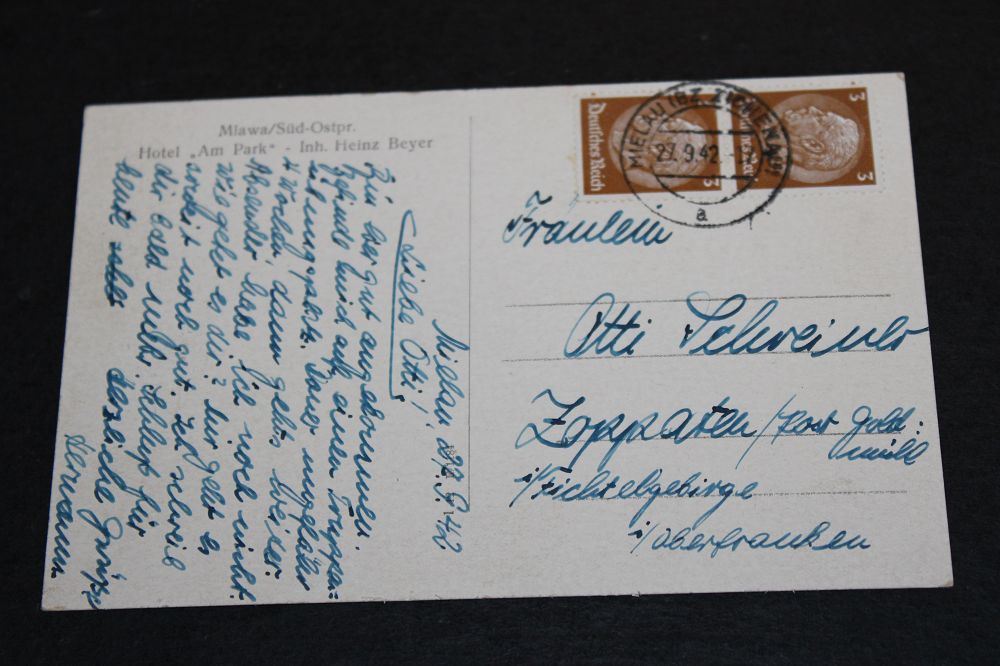 Mlawa/Süd-Ostpr.
Hotel „Am Park“ - Inh. Heinz Beyer
Mielau 27.9.42
Liebe Otti!
Bin hier gut angekommen.
Befinde mich auf einem Truppen=
übungsplatz. Dauer ungefähr
4 Wochen, dann gehts weiter.
Absender habe ich noch nicht.
Wie geht es dir? Mir geht es
soweit noch gut. Ich schreib
dir bald mehr. Schluß für
heute herzliche Grüße
Hermann
Deutsches Reich
3
3
3
MIELAU (BZ. ZICHENAU)
27.9.42
a
Fräulein
Otti Schreiner
Zoppaten / Post Gold=
mühl
i/Fichtelgebirge
i/Oberfranken